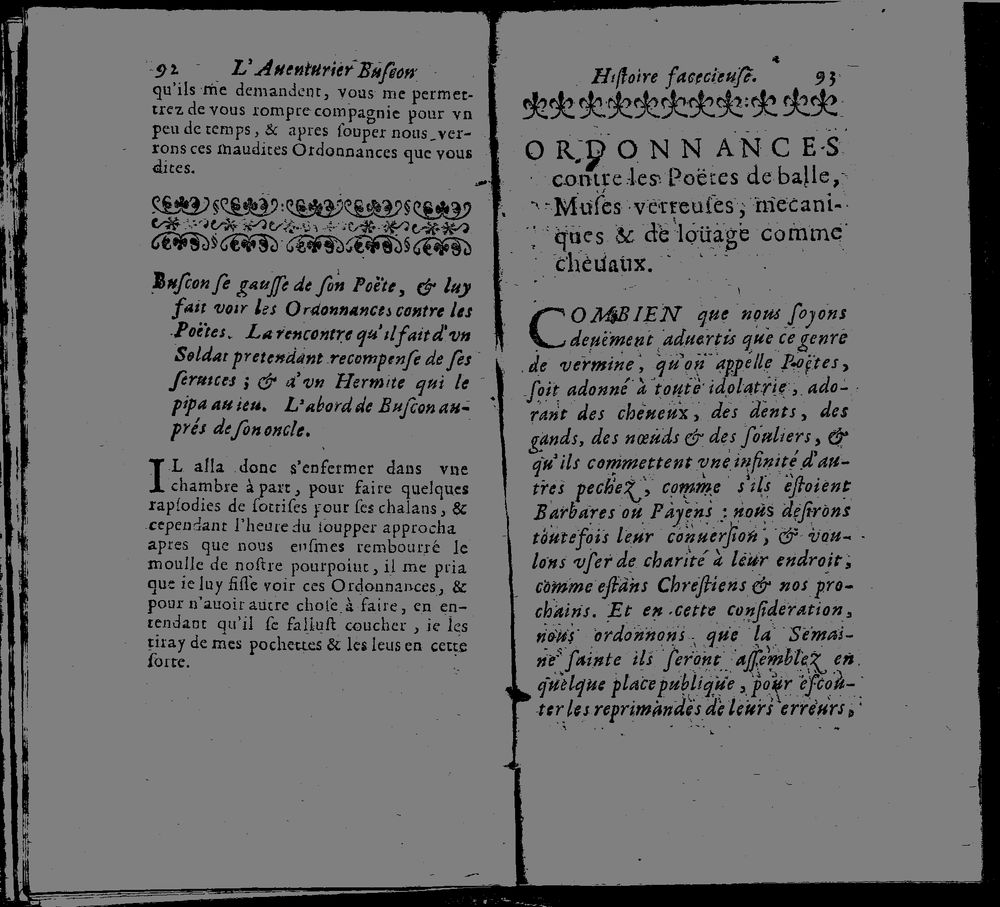 92 L'Auenturier Buscon
qu'ils me demandent, vous me permet-
trez de vous rompre compagnie pour vn
peu de temps, & apres souper nous ver-
rons ces maudites Ordonnances que vous
dites.
Buscon se gausse de son Poëte, & luy
fait voir les Ordonnances contre les
Poëtes. La rencontre qu'il fait d'vn
Soldat pretendant recompense de ses
seruices ; & d'vn Hermite qui le
pipa au ieu. L'abord de Buscon au-
prés de son oncle.
IL alla donc s'enfermer dans vne
chambre à part, pour faire quelques
rapsodies de sottises pour ses chalans, &
cependant l'heure du soupper approcha
apres que nous eusmes rembourré le
moulle de nostre pourpoint, il me pria
que ie luy fisse voir ces Ordonnances, &
pour n'auoir autre chose à faire, en en-
tendant qu'il se fallust coucher, ie les
tiray de mes pochettes & les leus en cette
sorte.
Histoire facecieuse. 93
ORDONNANCES
contre les Poëtes de balle,
Muses verreuses, mecani-
ques & de loüage comme
cheuaux.
COMBIEN que nous soyons
deuëment aduertis que ce genre
de vermine, qu'on appelle Poëtes,
soit adonné à toute idolatrie, ado-
rant des cheueux, des dents, des
gands, des nœuds & des souliers, &
qu'ils commettent vne infinité d'au-
tres pechez, comme s'ils estoient
Barbares ou Payens : nous desirons
toutefois leur conuersion, & vou-
lons vser de charité à leur endroit,
comme estans Chrestiens & nos pro-
chains. Et en cette consideration,
nous ordonnons que la Semai-
ne sainte ils seront assemblez en
quelque place publique, pour escou-
ter les reprimandes de leurs erreurs,